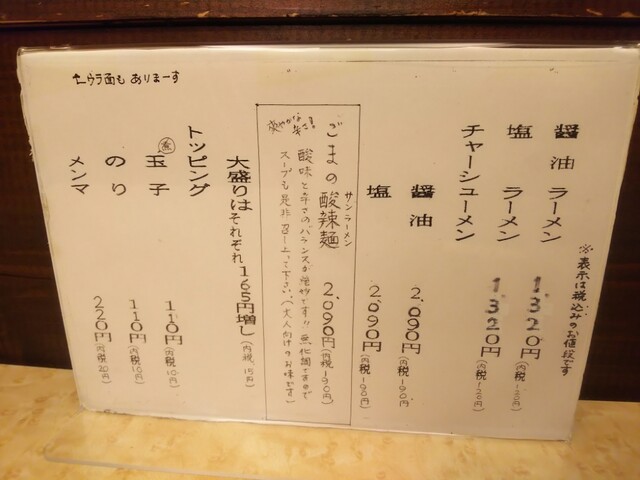 ※表示は税込みのお値段です
醤油ラーメン 1.320円(内税120円)
塩ラーメン 1.320円(内税120円)
チャーシューメン
醤油 2.090円(内税190円)
塩 2.090円(内税190円)
サンラーメン
ごまの酸辣麺 2.090円(内税190円)
爽やかな辛さ!
酸味と辛さのバランスが絶妙です!!無化調ですので
スープも是非召し上って下さい。(大人向けのお味です)
大盛りはそれぞれ165円増し(内税15円)
トッピング
煮玉子 110円(内税10円)
のり 110円(内税10円)
メンマ 220円(内税20円)
←ウラ面もありまーす